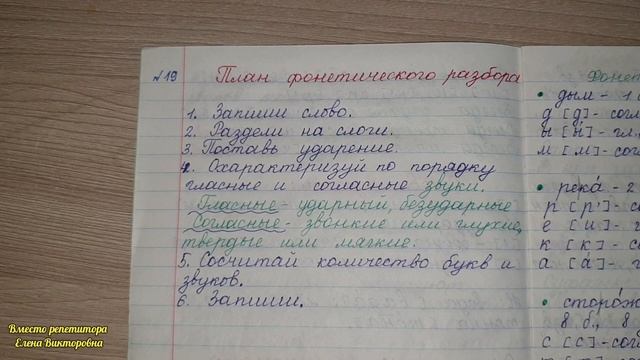 №19
План фонетического разбора
1. Запиши слово.
2. Раздели на слоги.
3. Поставь ударение.
4. Охарактеризуй по порядку
гласные и согласные звуки.
Гласные - ударный, безударные
Согласные - звонкие или глухие,
твердые или мягкие.
5. Сосчитай количество букв и
звуков.
6. Запиши.
Фонет
• дым - 1 с
д [д] - согл
ы [ы] - гл.
м [м] - сог
• река́ - 2
р [р'] - со
е [и] - г
к [к] - со
а [а́] - г
• сторо́ж
8 б., 8
с [с] - сог
Вместо репетитора
Елена Викторовна